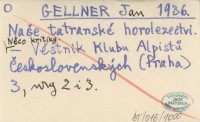 O GELLNER Jan 1936.
Naše tatranské horolezectví.
(Něco kritiky.)
– Věstník Klubu Alpistů
Československých (Praha)
3, nry 2 i 3.